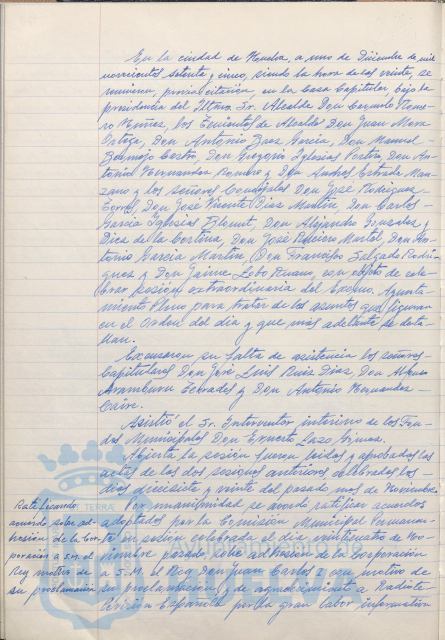 En la ciudad de Huelva, a uno de Diciembre de mil
novecientos setenta y cinco, siendo la hora de las veinte, se
reunieron, previa citación, en la Casa Capitular, bajo la
presidencia del Iltmo. Sr. Alcalde Don Rome-
ro Núñez, los Tenientes de Alcalde Don Juan Mora
Ortega, Don Antonio García, Don Manuel
Bermejo Castro, Don Gregorio Iglesias Don An-
tonio Hernández y Don Andrés Estrada Man-
zano y los señores Concejales Don José Rodríguez
Don José Vicente Díaz Martín, Don Carlos
García Iglesias Don Alejandro González y
Díez de la Cortina, Don José Martel, Don An-
tonio García Martín, Don Francisco Salgado Rodrí-
guez y Don Jaime Lobo Ruano, con objeto de cele-
brar sesión extraordinaria del Excmo. Ayunta-
miento Pleno para tratar de los asuntos que figuran
en el Orden del día y que más adelante se deta-
llan.
Excusaron su falta de asistencia los señores
Capitulares Don José Luis Ruiz Díaz, Don
Aramburu y Don Antonio Hernández-
Asistió el Sr. Interventor interino de los Fon-
dos Municipales Don Ernesto Lazo
Abierta la sesión fueron leídas y aprobadas las
actas de las dos sesiones anteriores celebradas los
días diecisiete y veinte del pasado mes de Noviembre.
Ratificando
acuerdo sobre ad-
hesión de la Cor-
poración a S.M. el
Rey motivo de
su proclamación
Por unanimidad se acordó ratificar acuerdos
adoptados por la Comisión Municipal Permanen-
te en sesión celebrada el día veinticuatro de No-
viembre pasado, sobre adhesión de la Corporación
a S.M. el Rey Don Juan Carlos I con motivo de
su proclamación y de agradecimiento a Radiote-
levisión Española por la gran labor informativa
TERRAE